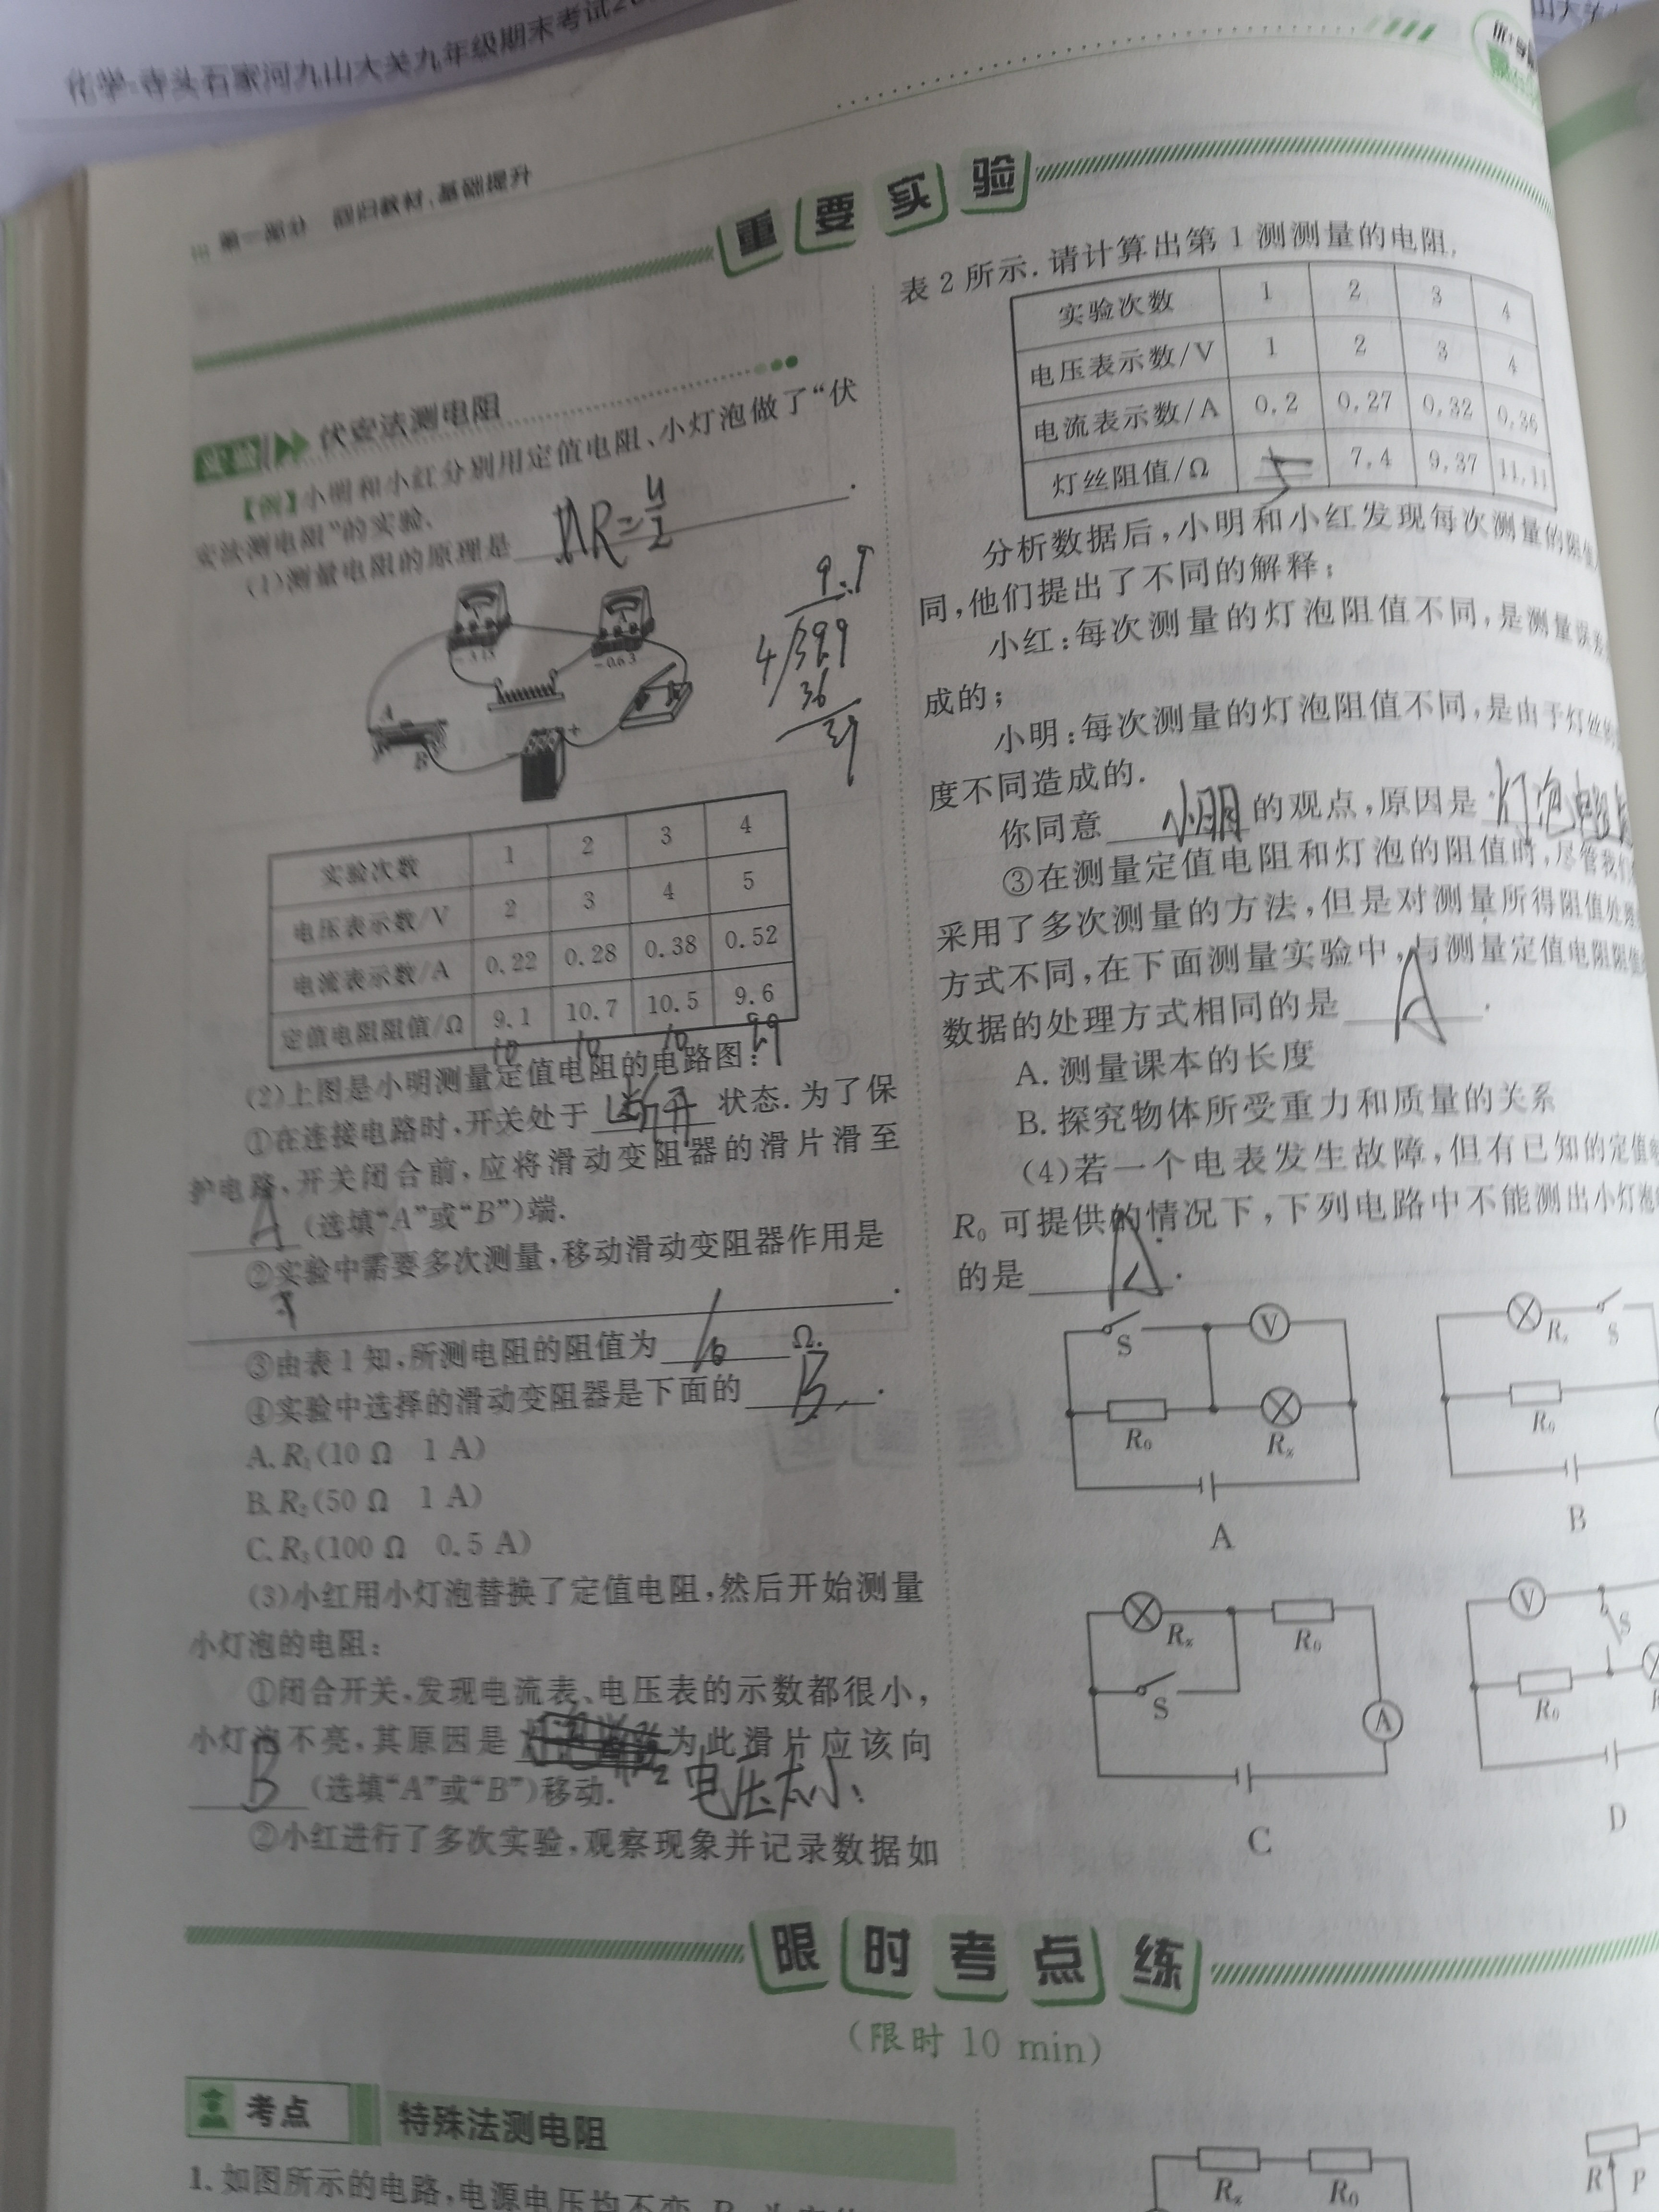 化学-寺头石家河九山大关九年级期末考试
山大关
第一部分 回归教材,基础提升
重要实验
实验 伏安法测电阻
【例】小明和小红分别用定值电阻、小灯泡做了“伏
安法测电阻”的实验.
(1)测量电阻的原理是 R=U/I .
9.9
4 399
36
39
A
B
+
实验次数 1 2 3 4
电压表示数/V 2 3 4 5
电流表示数/A 0.22 0.28 0.38 0.52
定值电阻阻值/Ω 9.1 10.7 10.5 9.6
10 10 10 99
(2)上图是小明测量定值电阻的电路图:
①在连接电路时,开关处于 断开 状态.为了保
护电路,开关闭合前,应将滑动变阻器的滑片滑至
A (选填“A”或“B”)端.
②实验中需要多次测量,移动滑动变阻器作用是
.
③由表1知,所测电阻的阻值为 10 Ω.
④实验中选择的滑动变阻器是下面的 B .
A.R₁(10 Ω 1 A)
B.R₂(50 Ω 1 A)
C.R₃(100 Ω 0.5 A)
(3)小红用小灯泡替换了定值电阻,然后开始测量
小灯泡的电阻:
①闭合开关,发现电流表、电压表的示数都很小,
小灯泡不亮,其原因是 为此滑片应该向
B (选填“A”或“B”)移动. 电压太小;
②小红进行了多次实验,观察现象并记录数据如
表2所示.请计算出第1测测量的电阻.
实验次数 1 2 3 4
电压表示数/V 1 2 3 4
电流表示数/A 0.2 0.27 0.32 0.36
灯丝阻值/Ω 5 7.4 9.37 11.11
分析数据后,小明和小红发现每次测量的阻值
同,他们提出了不同的解释;
小红:每次测量的灯泡阻值不同,是测量误差
成的;
小明:每次测量的灯泡阻值不同,是由于灯丝的
度不同造成的.
你同意 小明 的观点,原因是 灯泡电阻
③在测量定值电阻和灯泡的阻值时,尽管我们
采用了多次测量的方法,但是对测量所得阻值处理
方式不同,在下面测量实验中,与测量定值电阻阻值
数据的处理方式相同的是 A .
A.测量课本的长度
B.探究物体所受重力和质量的关系
(4)若一个电表发生故障,但有已知的定值
R₀ 可提供的情况下,下列电路中不能测出小灯泡
的是 A .
S V R₀ Rₓ
A
Rₓ S R₀
B
Rₓ R₀ S A
C
V S R₀
D
限时考点练
(限时 10 min)
考点 特殊法测电阻
1.如图所示的电路,电源电压均不变
Rₓ R₀
R P